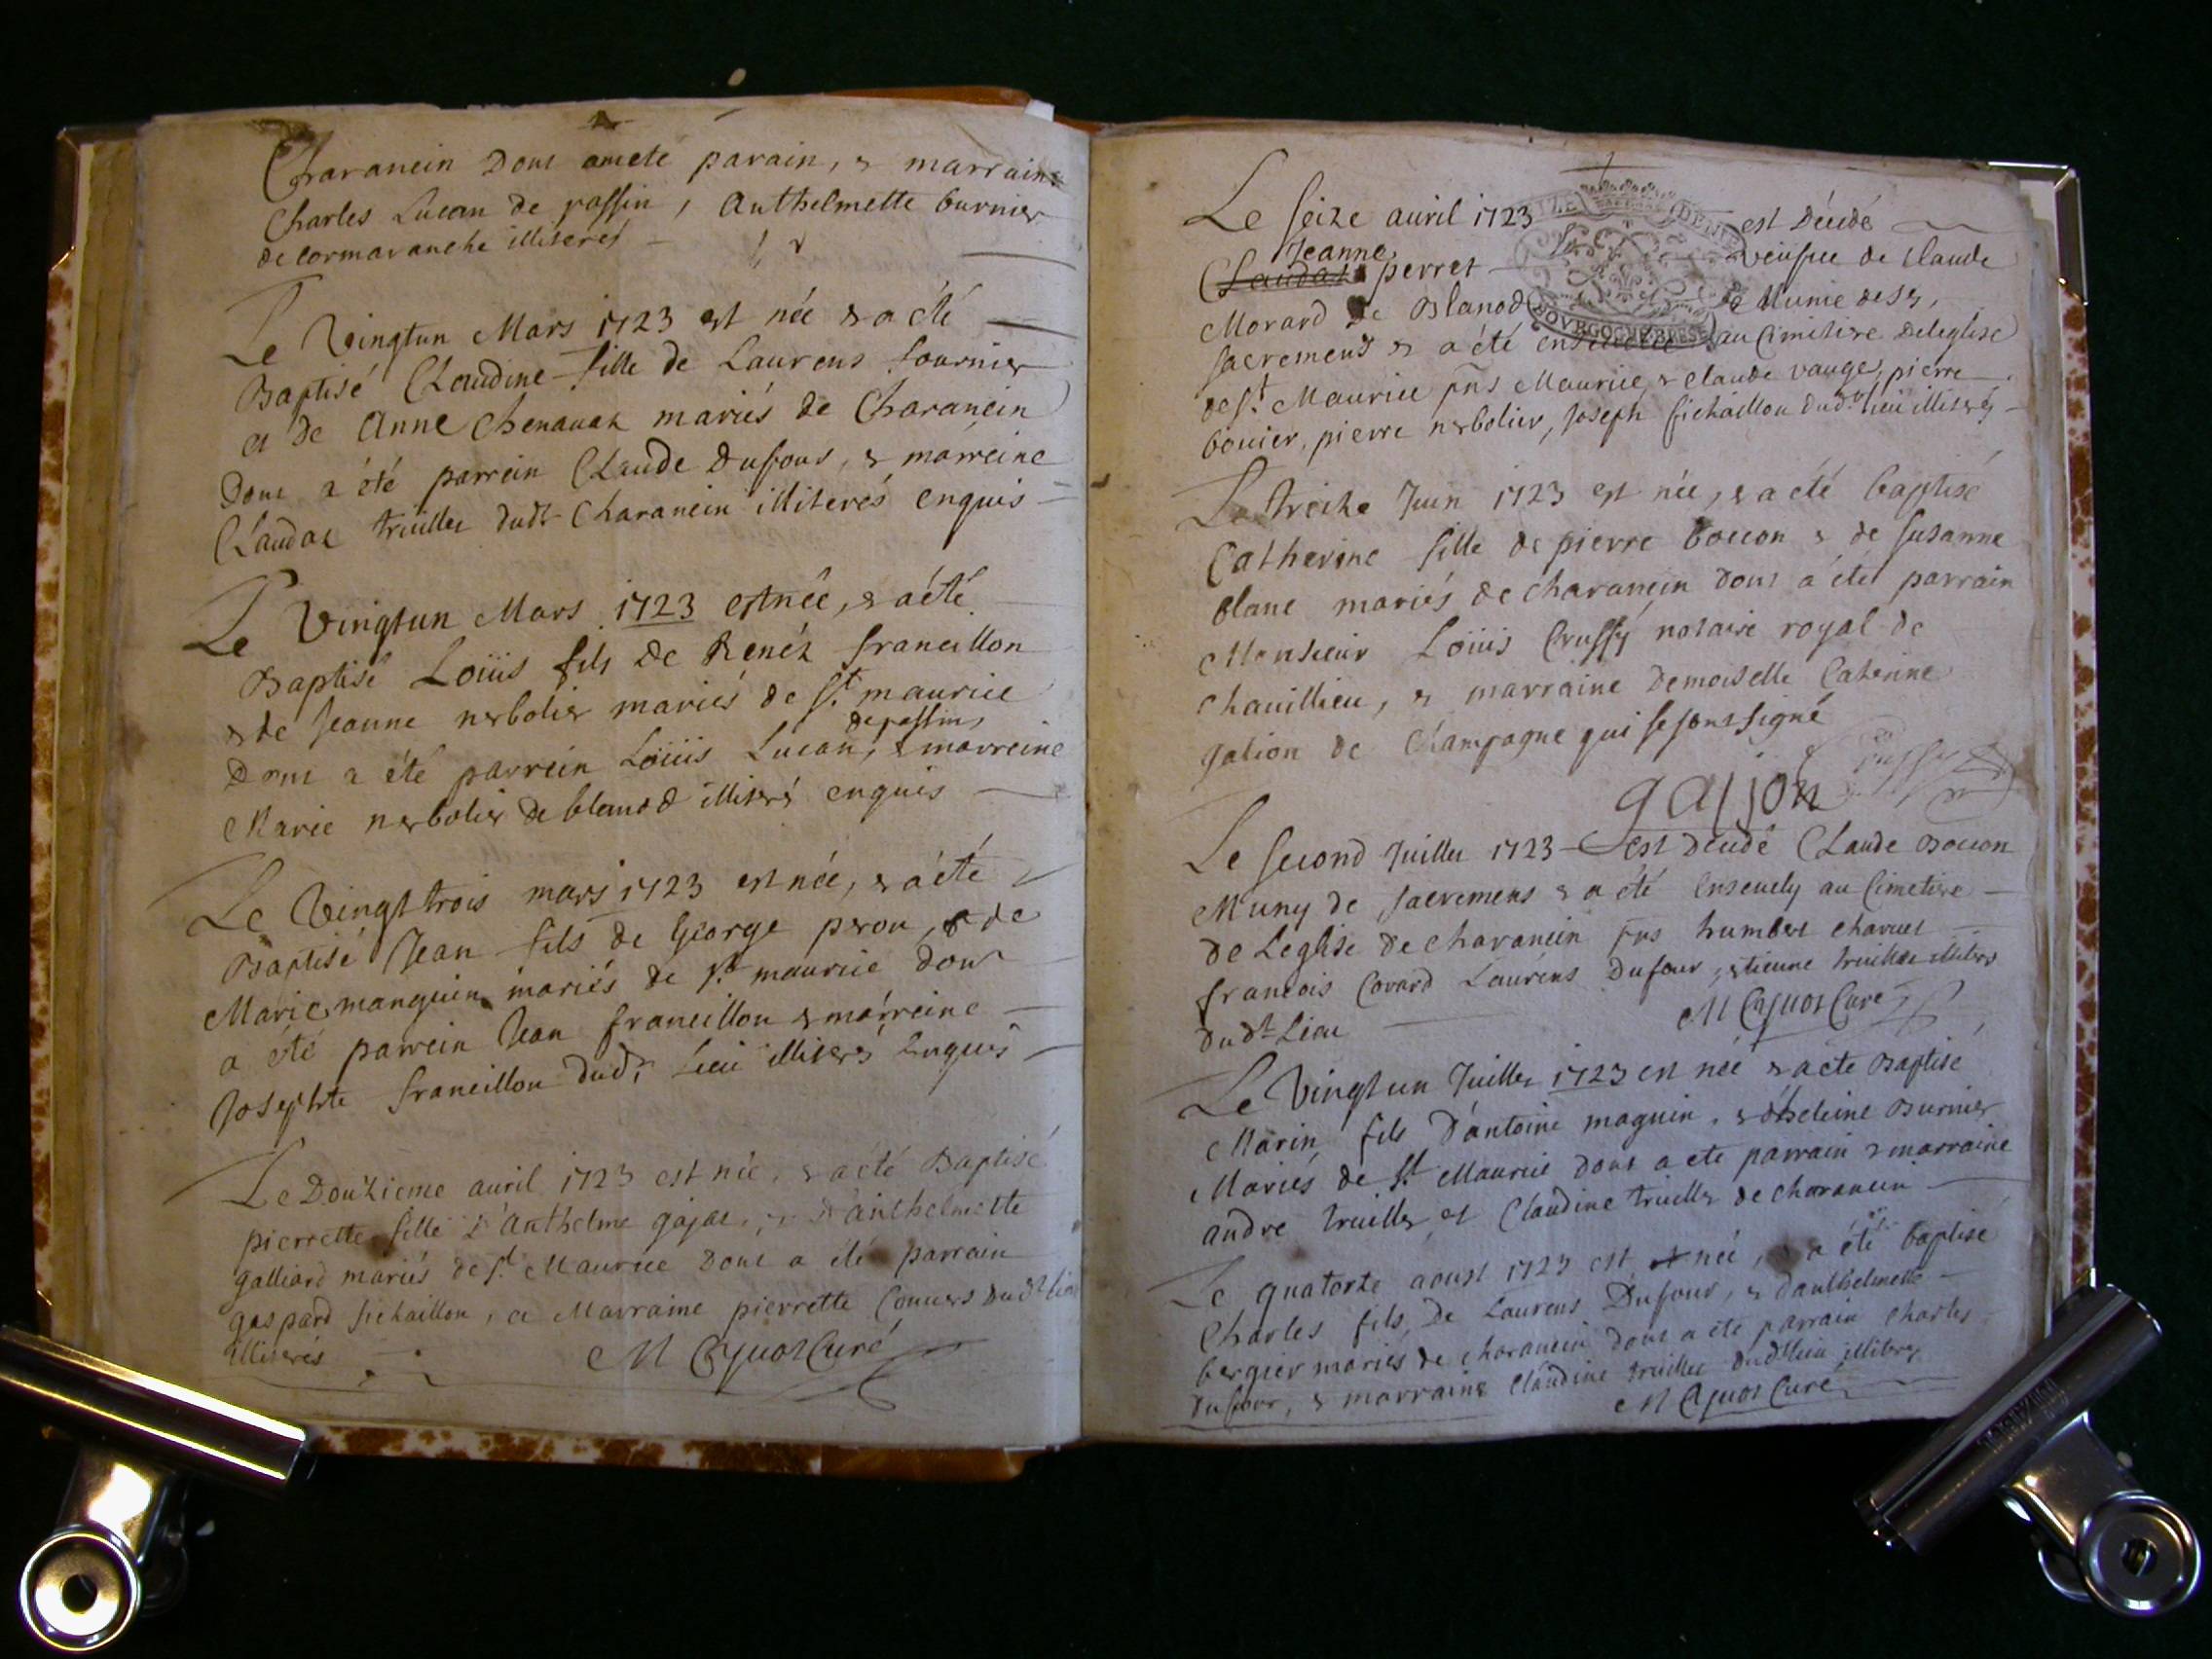 Charancin Dont ancté parain, & marraine
Charles Lucan de passin, Anthelmette burnier
de Cormaranche illiterés
Le Vingtun Mars 1723 est née & a été
Baptisé Claudine fille de Laurens fournier
et de Anne Chenavat mariés de Charancin
Dont a été parrein Claude Dufour, & marreine
Claudat truillet dudt Charancin illiterés enquis
Le Vingtun Mars 1723 est née, & a été
Baptisé Loüis fils de Renéz francillon
& de Jeanne nerbolier mariés de st maurice
de passin,
Dont a été parrein Loüis Lucan, & marreine
Marie nerbolier de blanod illiterés enquis
Le Vingt trois mars 1723 est née, & a été
Baptisé Jean fils de George peron, & de
Marie manguin mariés de st maurice dont
a été parrein Jean francillon & marreine
Josephte francillon dudt Lieu illiterés Enquis
Le Douzieme auril 1723 est née, & a été Baptisé
pierrette fille d'Anthelme gajat, & d'anthelmette
galliard mariés de st Maurice Dont a été parrain
gaspard fichaillon, et Marraine pierrette Convers Dudt Lieu
illiterés
M Cquot Curé
Le seize auril 1723 est Décédé
Jeanne
Claudat perret veufue de Claude
Morard de Blanod Munie de ses
sacremens & a été au Cimitiere De leglise
de st Maurice pns Maurice & Claude vauge, pierre
bouier, pierre nerbolier, Joseph fichaillon dudt lieu illiterés
Le treize Juin 1723 est née, & a été baptisé
Catherine fille de pierre boccon & de Susanne
blanc mariés de charancin dont a été parrain
Monsieur Loüis Crussy notaire royal de
Chavillieu, & marraine Demoiselle Caterine
galion de Champagne qui se sont signé
galion
Le second Juillet 1723 est décudé Claude Boccon
Muny de sacremens & a été Ensevely au Cimetiere
de Leglise de charancin pns humbert charvet
francois Covard Laurens Dufour, etienne truillet illiters
dudt Lieu
M Cquot Curé
Le Vingtun Juillet 1723 est née & a ete Baptisé
Marin fils D'antoine maguin, & d'heleine Burnier
Mariés de st Maurice dont a ete parrain & marraine
andre truillet, et Claudine truillet de charancin
Le quatorze aoust 1723 est née, & a été baptisé
Charles fils De Laurens Dufour, & d'anthelmette
bergier mariés de charancin dont a été parrain Charles
Dufour, & marraine Claudine truillet dudt lieu illiteres
M Cquot Curé